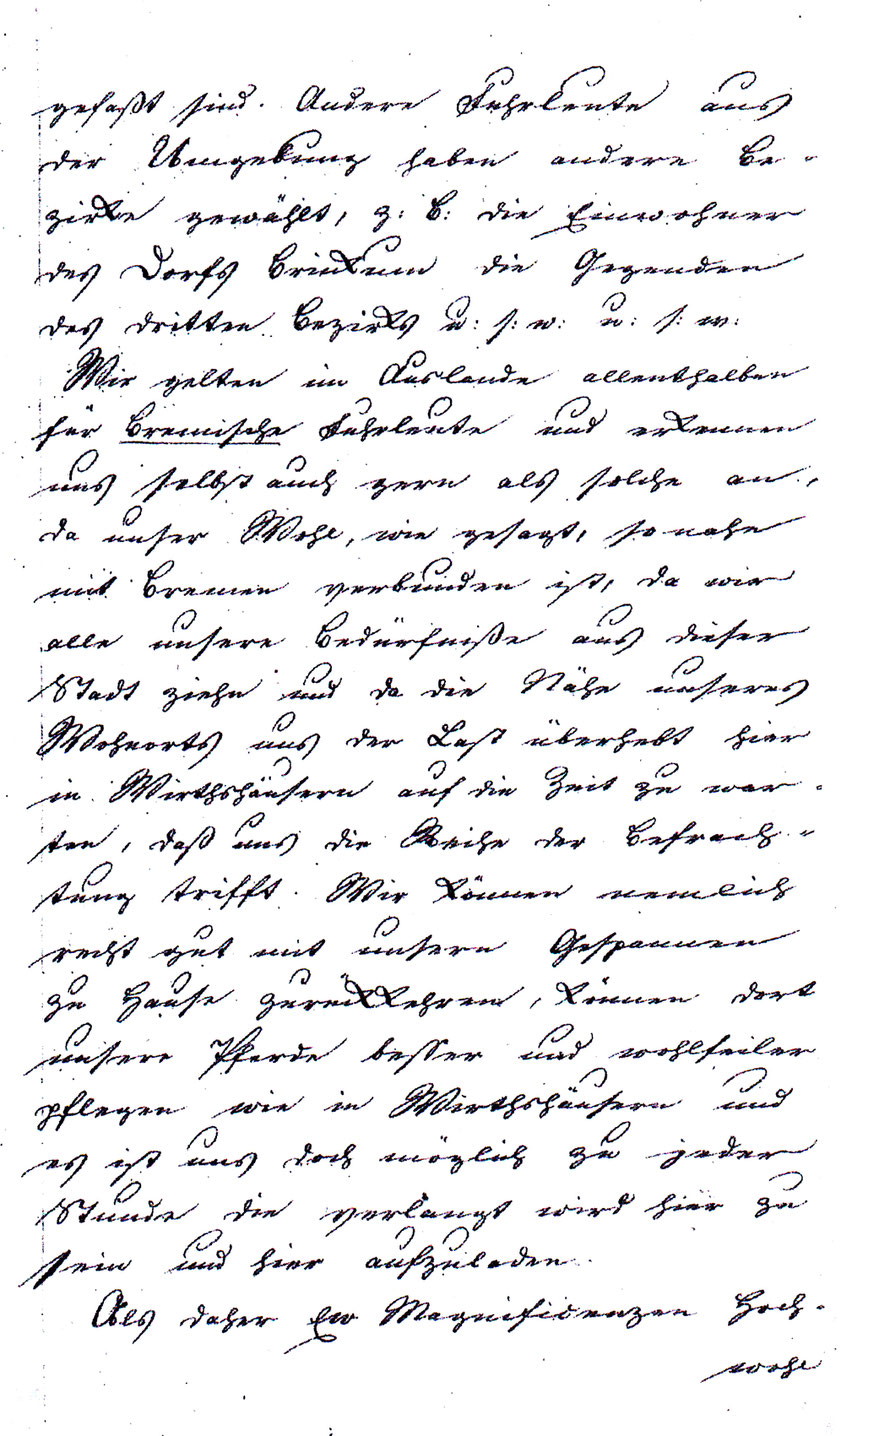 gefaßt sind. Andere Fuhrleute aus
der Umgebung haben andere Be-
zirke gewählt, z: B: die Einwohner
des Dorfs Brinkum die Gegenden
des dritten Bezirks u: s: w: u: s: w:
Wir gelten im Auslande allenthalben
für Bremische Fuhrleute und erkennen
uns selbst auch gern als solche an,
da unser Wohl, wie gesagt, so nahe
mit Bremen verbunden ist, da wir
alle unsere Bedürfniße aus dieser
Stadt ziehn und da die Nähe unseres
Wohnorts uns der Last überhebt hier
in Wirthshäusern auf die Zeit zu war-
ten, daß uns die Reihe der Befrach-
tung trifft. Wir können nemlich
recht gut mit unsern Gespannen
zu Hause zurückkehren, können dort
unsere Pferde besser und wohlfeiler
pflegen wie in Wirthshäusern und
es ist uns doch möglich zu jeder
Stunde die verlangt wird hier zu
sein und hier aufzuladen.
Als daher Ew Magnificenzen Hoch-
wohl